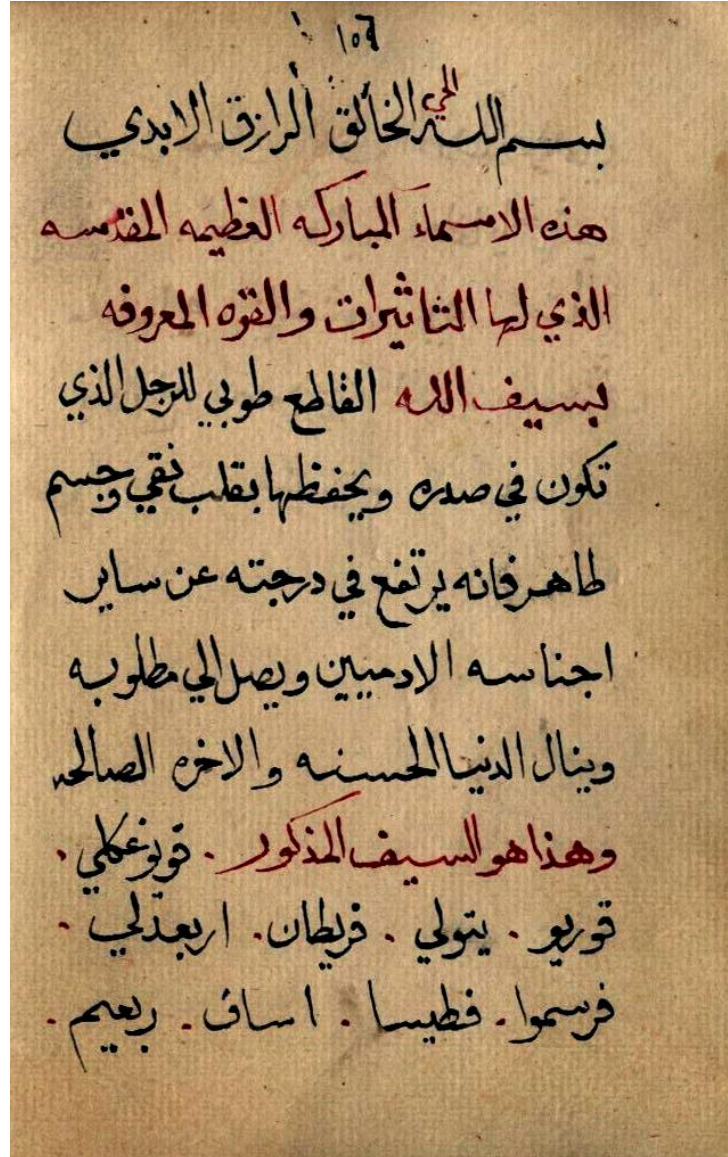 ١٥٦
بسم الله الحي الخالق الرازق الابدي
هذه الاسماء المباركه العظيمه المقدسه
الذي لها التاثيرات والقوه المعروفه
بسيف الله القاطع طوبي للرجل الذي
تكون في صدره ويحفظها بقلب نقي وجسم
طاهر فانه يرتفع في درجته عن ساير
اجناسه الادميين ويصل الي مطلوبه
وينال الدنيا الحسنه والاخره الصالحه
وهذا هو السيف المذكور . قوبوغكلي .
قوربو . يتولي . فريطان . اربعدلي .
فرسموا . فطيسا . اساف . ربعيم .